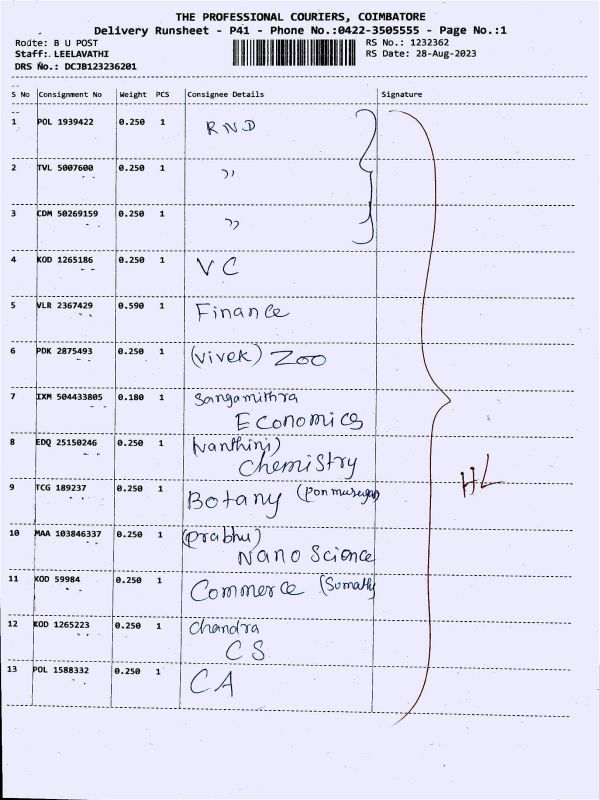 THE PROFESSIONAL COURIERS, COIMBATORE
Delivery Runsheet - P41 - Phone No.:0422-3505555 - Page No.:1
Route: B U POST RS No.: 1232362
Staff: LEELAVATHI RS Date: 28-Aug-2023
DRS No.: DCJB123236201
S No Consignment No Weight PCS Consignee Details Signature
1 POL 1939422 0.250 1 RND
2 TVL 5007600 0.250 1 ,,
3 CDM 50269159 0.250 1 ,,
4 KOD 1265186 0.250 1 VC
5 VLR 2367429 0.590 1 Finance
6 PDK 2875493 0.250 1 (vivek) Zoo
7 IXM 504433805 0.180 1 Sangamithra
Economics
8 EDQ 25150246 0.250 1 (vanthini)
Chemistry
HL
9 TCG 189237 0.250 1 Botany
10 MAA 103846337 0.250 1 (prabhu)
Nano Science
11 KOD 59984 0.250 1 Commerce (Sumathy
12 KOD 1265223 0.250 1 Chandra
CS
13 POL 1588332 0.250 1 CA